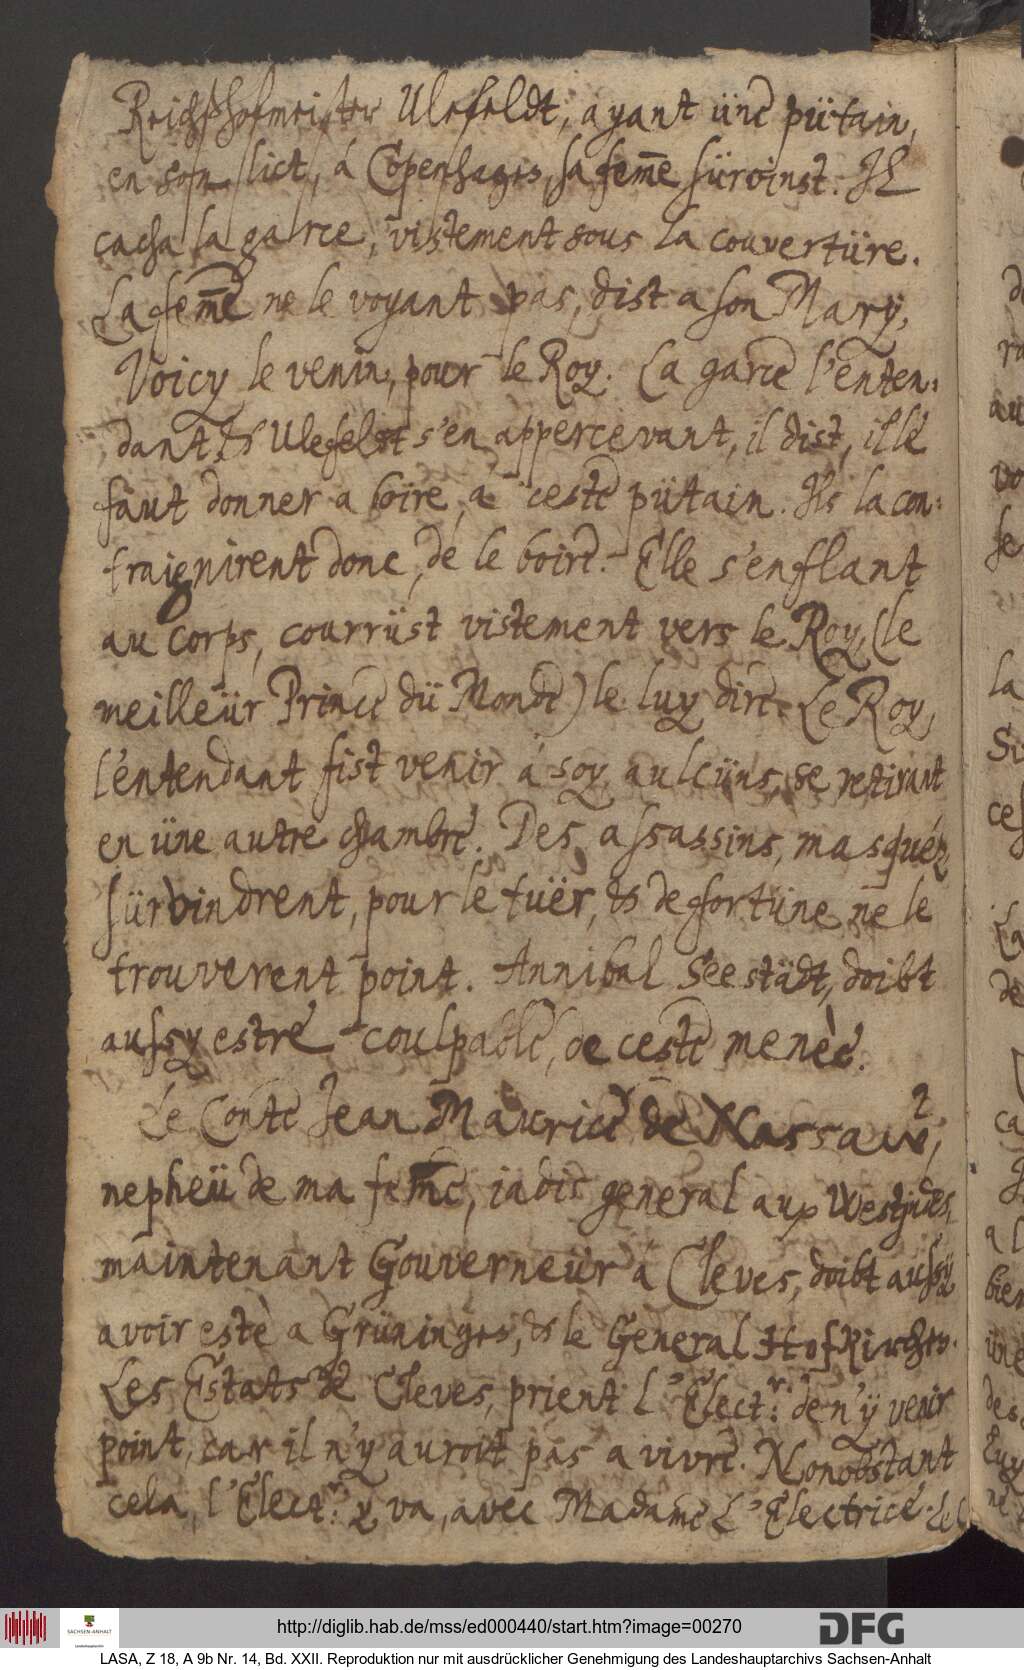 Reichßhofmeister Ulefeldt, ayant üne pütain,
en son lict, á Copenhagen, sa fem̄e sürvinst. Il
cacha la garce, vistement sous la couvertüre.
La fem̄e ne le voyant pas, dist a son Mary,
Voicy le venin, pour le Roy. La garce l'enten:
dant, & Ulefeldt s'en appercevant, il dist, il le
faut donner a boire, a ceste pütain. Ils la con:
traignirent donc, de le boire. Elle s'enflant
au corps, courrüst vistement vers le Roy, (le
meilleür Prince dü Monde) le luy dire. Le Roy,
l'entendant fist venir á soy, aulcüns, se retirant
en üne autre chambre. Des assassins, masquéz
sürvindrent, pour le tuër, & de fortüne, ne le
trouverent point. Annibal Seestädt, doibt
aussy estre coulpable, de ceste menèe.
Le Conte Jean Maurice de Nassaw,
nepheü de ma fem̄e, jadis general aux WestJndes,
maintenant Gouverneür a Cleves, doibt aussy
avoir estè a Grüningen, & le General Hofkirchen.
Les Estats de Cleves, prient l'Elect:r de n'ÿ venir
point, car il n'y auroit pas a vivre. Nonobstant
cela, l'Elect:r y va, avec Madame L'Electrice.
http://diglib.hab.de/mss/ed000440/start.htm?image=00270
SACHSEN-ANHALT
Landeshauptarchiv
DFG
LASA, Z 18, A 9b Nr. 14, Bd. XXII. Reproduktion nur mit ausdrücklicher Genehmigung des Landeshauptarchivs Sachsen-Anhalt